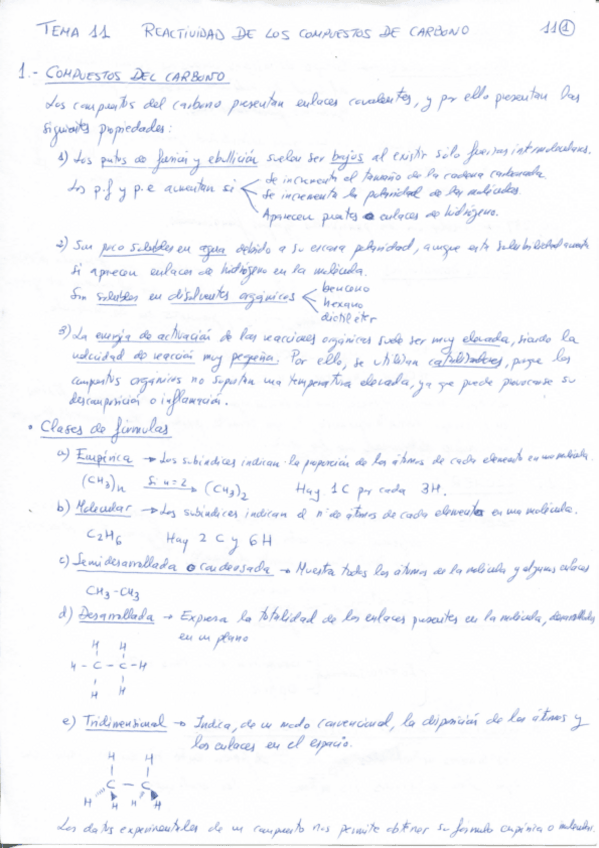 TEMA 11 REACTIVIDAD DE LOS COMPUESTOS DE CARBONO 11 1
1.- COMPUESTOS DEL CARBONO
Los compuestos del carbono presentan enlaces covalentes, y por ello presentan las
siguientes propiedades:
1) Los puntos de fusión y ebullición suelen ser bajos al existir sólo fuerzas intermoleculares.
Los p.f y p.e aumentan si
Se incrementa el tamaño de la cadena carbonada.
Se incrementa la polaridad de las moléculas.
Aparecen puentes o enlaces de hidrógeno.
2) Son poco solubles en agua debido a su escasa polaridad, aunque esta solubilidad aumenta
si aparecen enlaces de hidrógeno en la molécula.
Son solubles en disolventes orgánicos
benceno
hexano
dietiléter
3) La energía de activación de las reacciones orgánicas suele ser muy elevada, siendo la
velocidad de reacción muy pequeña. Por ello, se utilizan catalizadores, porque los
compuestos orgánicos no soportan una temperatura elevada, ya que puede provocarse su
descomposición o inflamación.
• Clases de fórmulas
a) Empírica → Los subíndices indican la proporción de los átomos de cada elemento en una molécula.
(CH3)n Si n=2 → (CH3)2 Hay 1C por cada 3H.
b) Molecular → Los subíndices indican el nº de átomos de cada elemento en una molécula.
C2H6 Hay 2 C y 6H
c) Semidesarrollada o condensada → Muestra todos los átomos de la molécula y algunos enlaces
CH3-CH3
d) Desarrollada → Expresa la totalidad de los enlaces presentes en la molécula, desarrollados
en un plano
H H
H - C - C - H
H H
e) Tridimensional → Indica, de un modo convencional, la disposición de los átomos y
los enlaces en el espacio.
H H
C - C
H H H H
Los datos experimentales de un compuesto nos permite obtener su fórmula empírica o molecular.